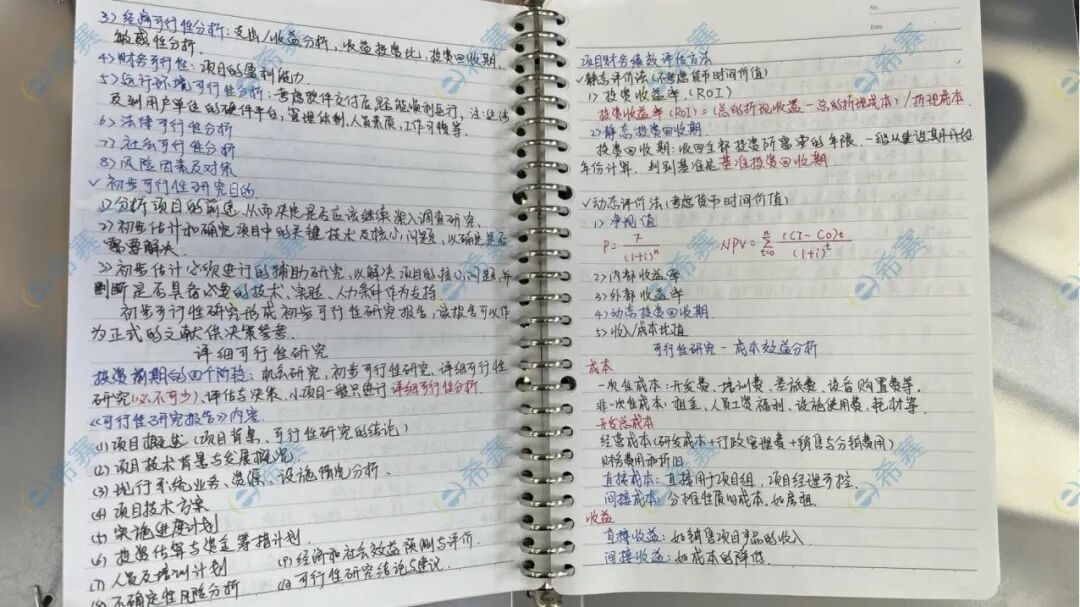 3) 经济可行性分析：支出/收益分析，收益投资比，投资回收期，
敏感性分析.
4) 财务可行性：项目的盈利能力.
5) 运行环境可行性分析：考虑软件交付后是否能顺利运行，
及到用户单位的硬件平台，管理体制，人员素质，工作习惯等.
6) 法律可行性分析
7) 社会可行性分析
8) 风险因素及对策
✓ 初步可行性研究目的
1) 分析项目的前途，从而决定是否应该继续深入调查研究、
2) 初步估计和确定项目中的关键技术及核心问题，以确定是否
需要解决.
3) 初步估计必须进行的辅助研究，以解决项目的核心问题，并
判断是否具备必要的技术、实验、人力条件作为支持
初步可行性研究形成初步可行性研究报告，该报告可以作
为正式的文献供决策参考.
详细可行性研究
投资前期的四个阶段：机会研究、初步可行性研究、详细可行性
研究(必不可少)、评估与决策、小项目一般只进行详细可行性分析.
《可行性研究报告》内容
(1) 项目概述（项目背景、可行性研究的结论）
(2) 项目技术背景与发展概况
(3) 现行系统业务、资源、设施情况分析.
(4) 项目技术方案
(5) 实施进度计划
(6) 投资估算与资金筹措计划.
(7) 人员及培训计划
(8) 不确定性风险分析
(9) 经济和社会效益预测与评价.
(10) 可行性研究结论与建议.
No.
Date
项目财务绩效评估方法
✓静态评价法(不考虑货币时间价值)
1) 投资收益率 (ROI)
投资收益率(ROI)=(总的折现收益-总的折现成本)/折现成本
2) 静态投资回收期
投资回收期：收回全部投资所需要的年限，一般从建设期开始
年份计算，判别基准是基准投资回收期
✓动态评价法(考虑货币时间价值)
1) 净现值
P=F/(1+i)^n NPV=∑_{t=0}^{n} (CI-CO)t/(1+i)^t
2) 内部收益率
3) 外部收益率
4) 动态投资回收期
5) 收入/成本比值
可行性研究-成本效益分析
成本
一次性成本：开发费、培训费、差旅费、设备购置费等.
非一次性成本：租金、人员工资福利、设施使用费、耗材等.
开发总成本
经营成本(研发成本+行政管理费+销售与分销费用)
财务费用和折旧
直接成本：直接用于项目组，项目经理可控.
间接成本：分摊性质的成本.如房租
收益
直接收益：如销售项目产品的收入.
间接收益：如成本的降低.
希赛